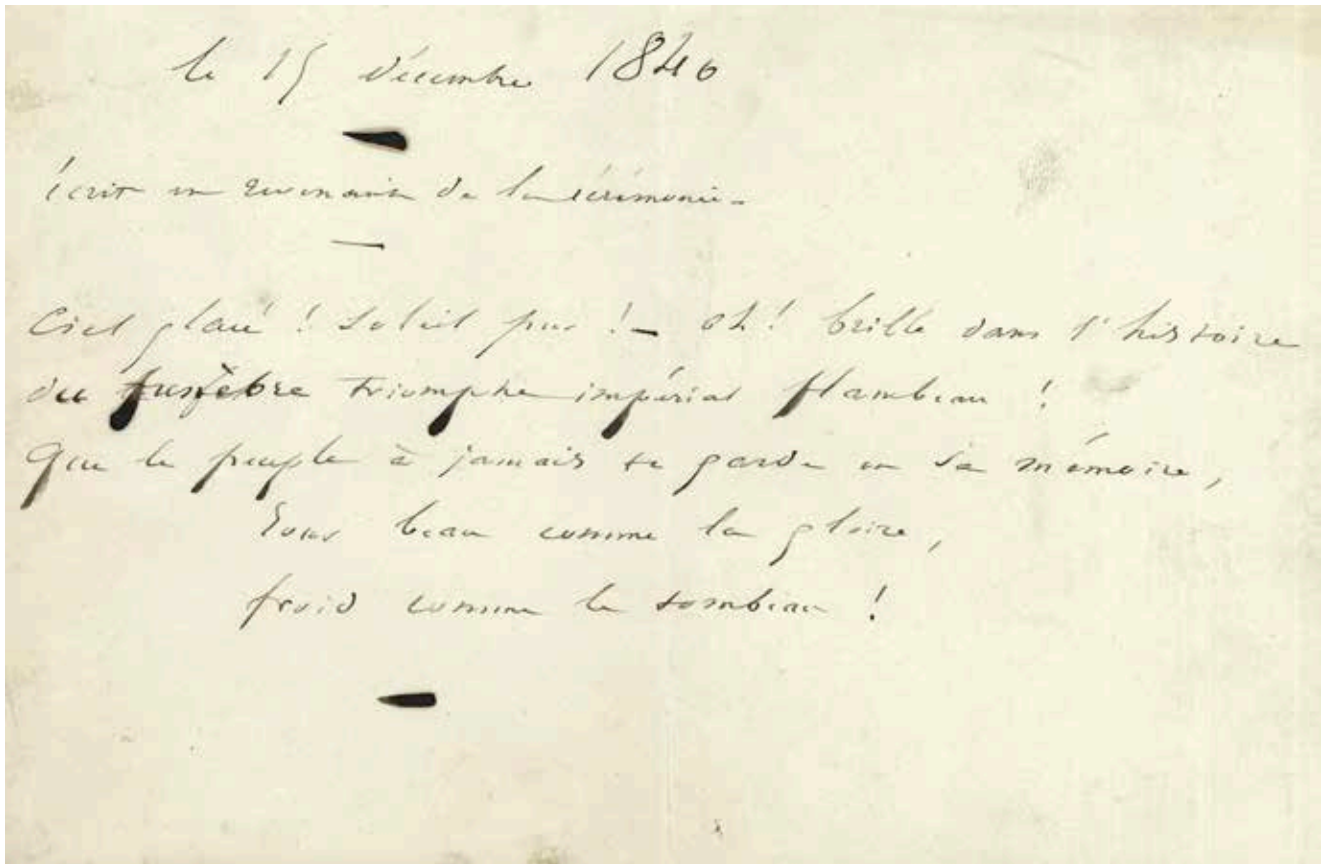 le 15 décembre 1840
écrit en revenant de la cérémonie_
Ciel glacé ! soleil pur ! _ oh ! brille dans l'histoire
du funèbre triomphe impérial flambeau !
Que le peuple à jamais te garde en sa mémoire,
Jour beau comme la gloire,
froid comme le tombeau !